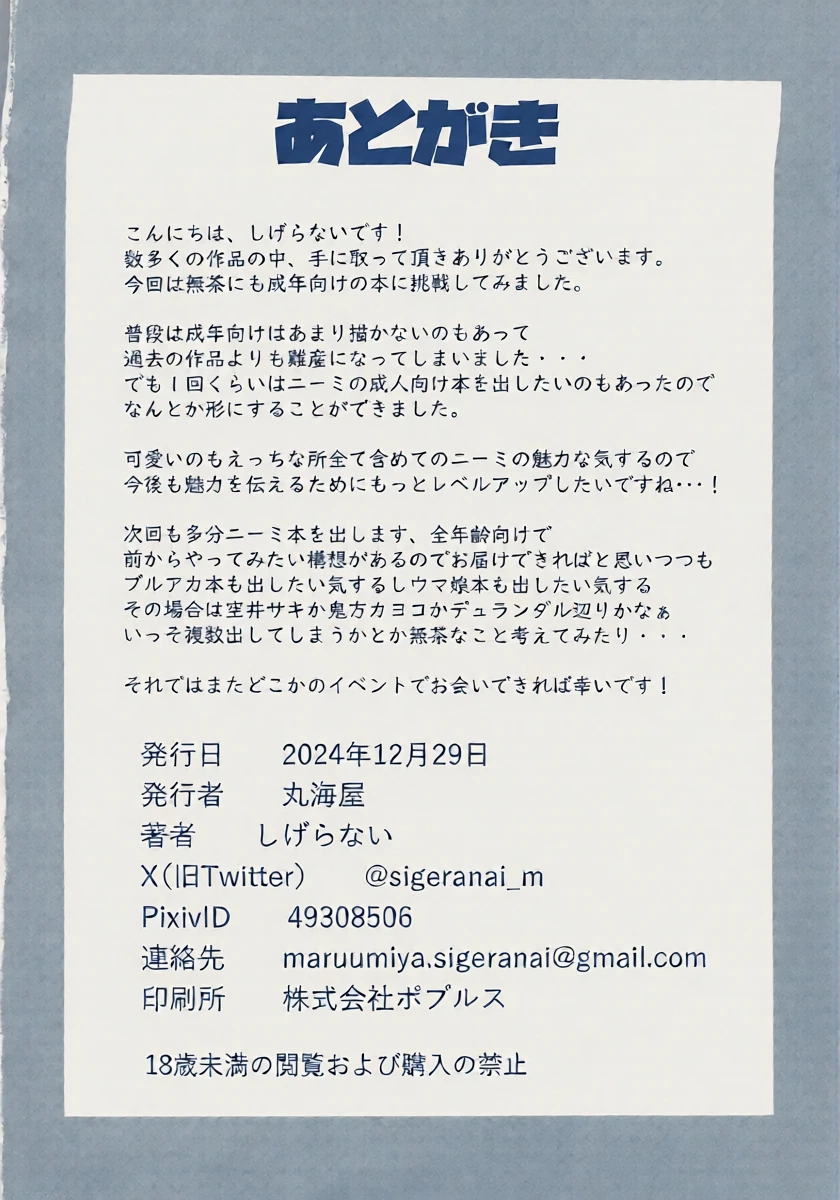 あとがき
こんにちは、しげらないです！
数多くの作品の中、手に取って頂きありがとうございます。
今回は無茶にも成年向けの本に挑戦してみました。
普段は成年向けはあまり描かないのもあって
過去の作品よりも難産になってしまいました・・・
でも1回くらいはニーミの成人向け本を出したいのもあったので
なんとか形にすることができました。
可愛いのもえっちな所全て含めてのニーミの魅力な気するので
今後も魅力を伝えるためにもっとレベルアップしたいですね・・・！
次回も多分ニーミ本を出します、全年齢向けで
前からやってみたい構想があるのでお届けできればと思いつつも
ブルアカ本も出したい気するしウマ娘本も出したい気する
その場合は空井サキか鬼方カヨコかデュランダル辺りかなぁ
いっそ複数出してしまうかとか無茶なこと考えてみたり・・・
それではまたどこかのイベントでお会いできれば幸いです！
発行日 2024年12月29日
発行者 丸海屋
著者 しげらない
X(旧Twitter) @sigeranai_m
PixivID 49308506
連絡先 maruumiya.sigeranai@gmail.com
印刷所 株式会社ポプルス
18歳未満の閲覧および購入の禁止